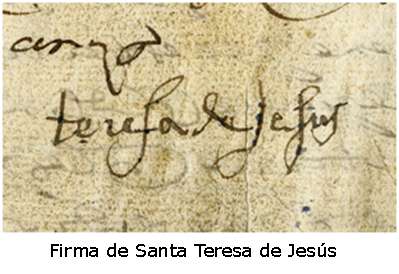 teresa de Jesus
Firma de Santa Teresa de Jesús